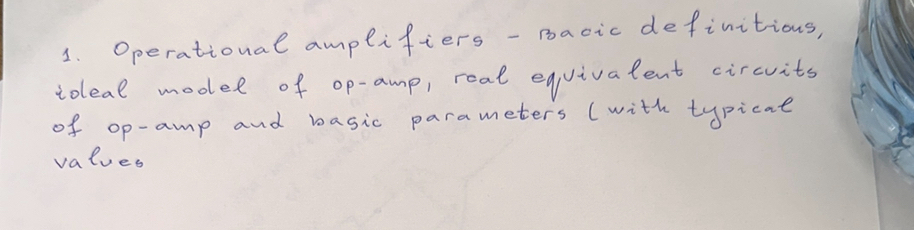 1. Operational amplifiers - basic definitions,
ideal model of op-amp, real equivalent circuits
of op-amp and basic parameters (with typical
values